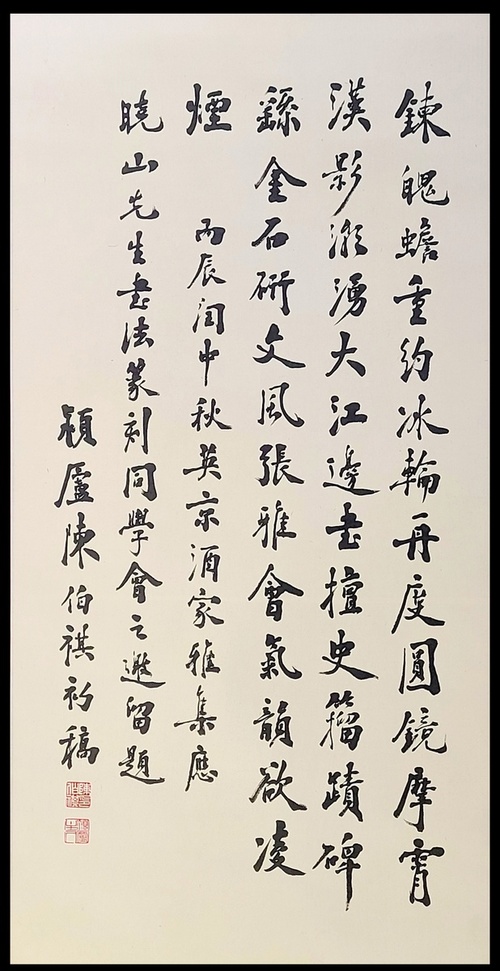 鍊魄蟾重約冰輪再度圓鏡摩霄
漢影湧大江邊書擅史籀蹟碑
繇金石研文風張雅會氣韻欲凌
煙 丙辰閏中秋英京酒家雅集應
曉山先生書法篆刻同學會之邀留題
穎廬陳伯祺初稿